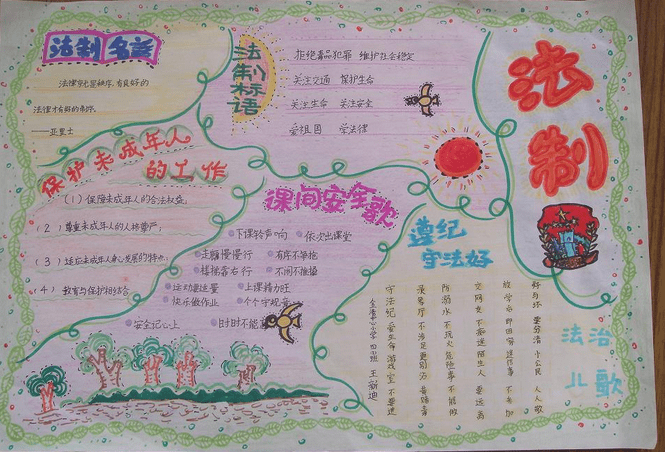 法制名言
法律就是秩序,有良好的
法律才有好的秩序。
——亚里士
法制标语
拒绝毒品犯罪 维护社会稳定
关注交通 保护生命
关注生命 关注安全
爱祖国 学法律
法制
保护未成年人
的工作
(1)保障未成年人的合法权益;
(2)尊重未成年人的人格尊严;
(3)适应未成年人身心发展的特点;
(4)教育与保护相结合
课间安全歌
下课铃声响 依次出课堂
走廊慢慢行 有序不争抢
楼梯靠右行 不闹不推搡
运动要适量 上课精力旺
快乐做作业 个个守规章
安全记心上 时时不能忘
遵纪
守法好
法治
儿歌
好与坏 要分清 小公民 人人敬
放学后 即回家 进坏事 不参加
交网友 不滥进 陌生人 要远离
防溺水 不玩火 危险事 不能做
录像厅 不涉足 更别沾
守法纪 爱生命 游戏室 不要进
小学 四班 王